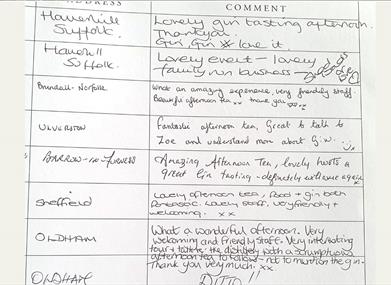 ADDRESS COMMENT
Haverhill Lovely gin tasting afternoon.
Suffolk. Thankyou.
Gin Gin love it
Haverhill Lovely event - lovely
Suffolk. family run business -
Brundall - Norfolk What an amazing experience, very friendly staff.
Beautiful afternoon tea. thank you
ULVERSTON Fantastic afternoon tea, Great to talk to
Zoe and understand more about Gin.
BARROW-IN-FURNESS Amazing Afternoon Tea, lovely hosts a
great Gin tasting - definitely welcome again
Sheffield Lovely afternoon tea, food + gin both
fantastic. Lovely staff, very friendly +
welcoming. xx
OLDHAM What a wonderful afternoon. Very
welcoming and friendly staff. Very interesting
tour + the distillery with a scrumptious
afternoon tea to follow - not to mention the gin.
Thank you very much. xx
OLDHAM DITTO!!